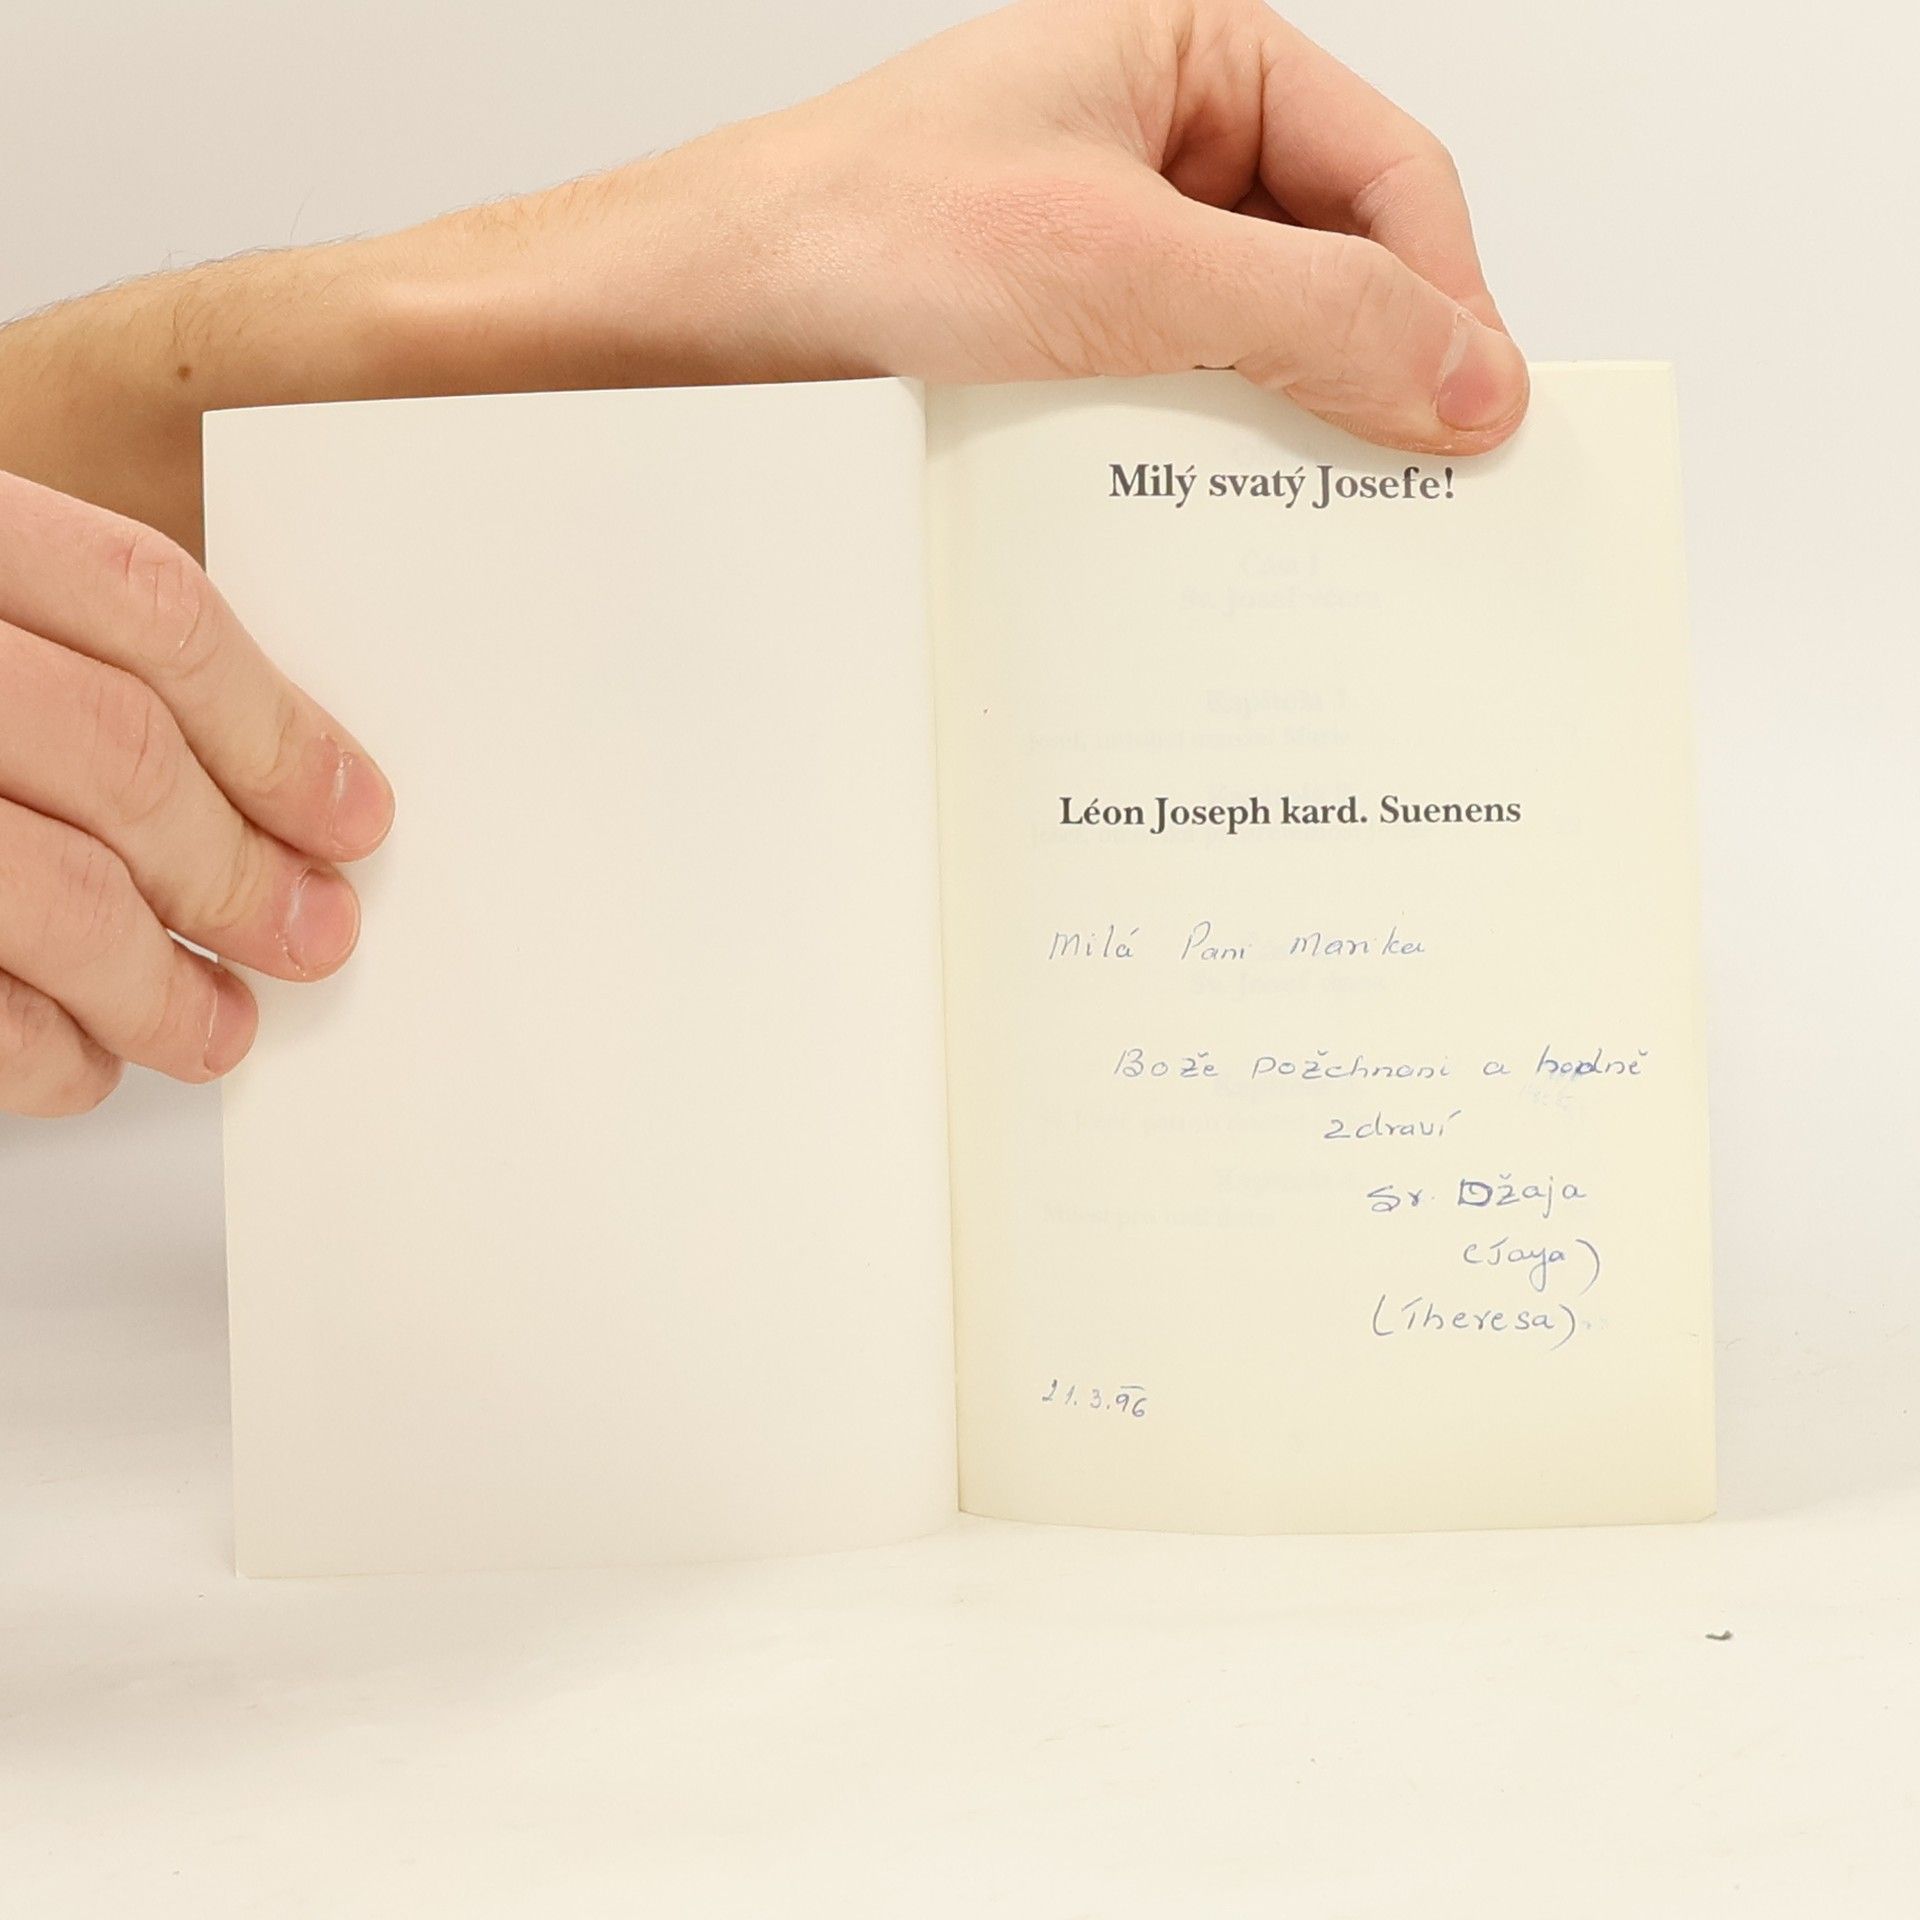 Milý svatý Josefe!
Léon Joseph kard. Suenens
Milá Pani Marika
Bože Požehnani a hodně
zdraví
Sr. Džaja
(Jaya)
(Theresa)
21.3.96